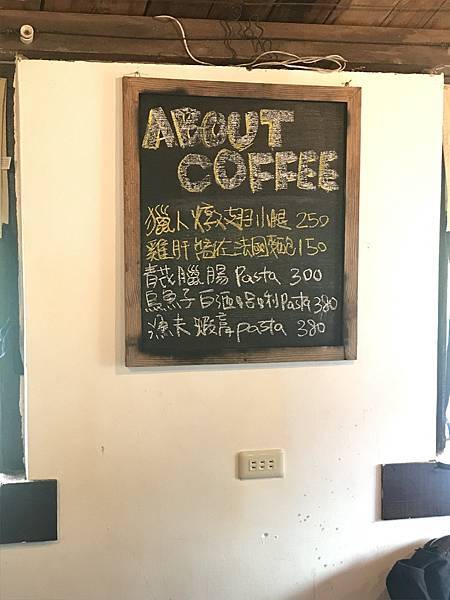 ABOUT
COFFEE
獵人燉翅小腿 250
雞肝陪在法國麵包 150
青菧臘腸 Pasta 300
烏魚子白酒蛤蜊 Pasta 380
漁夫蝦膏 pasta 380